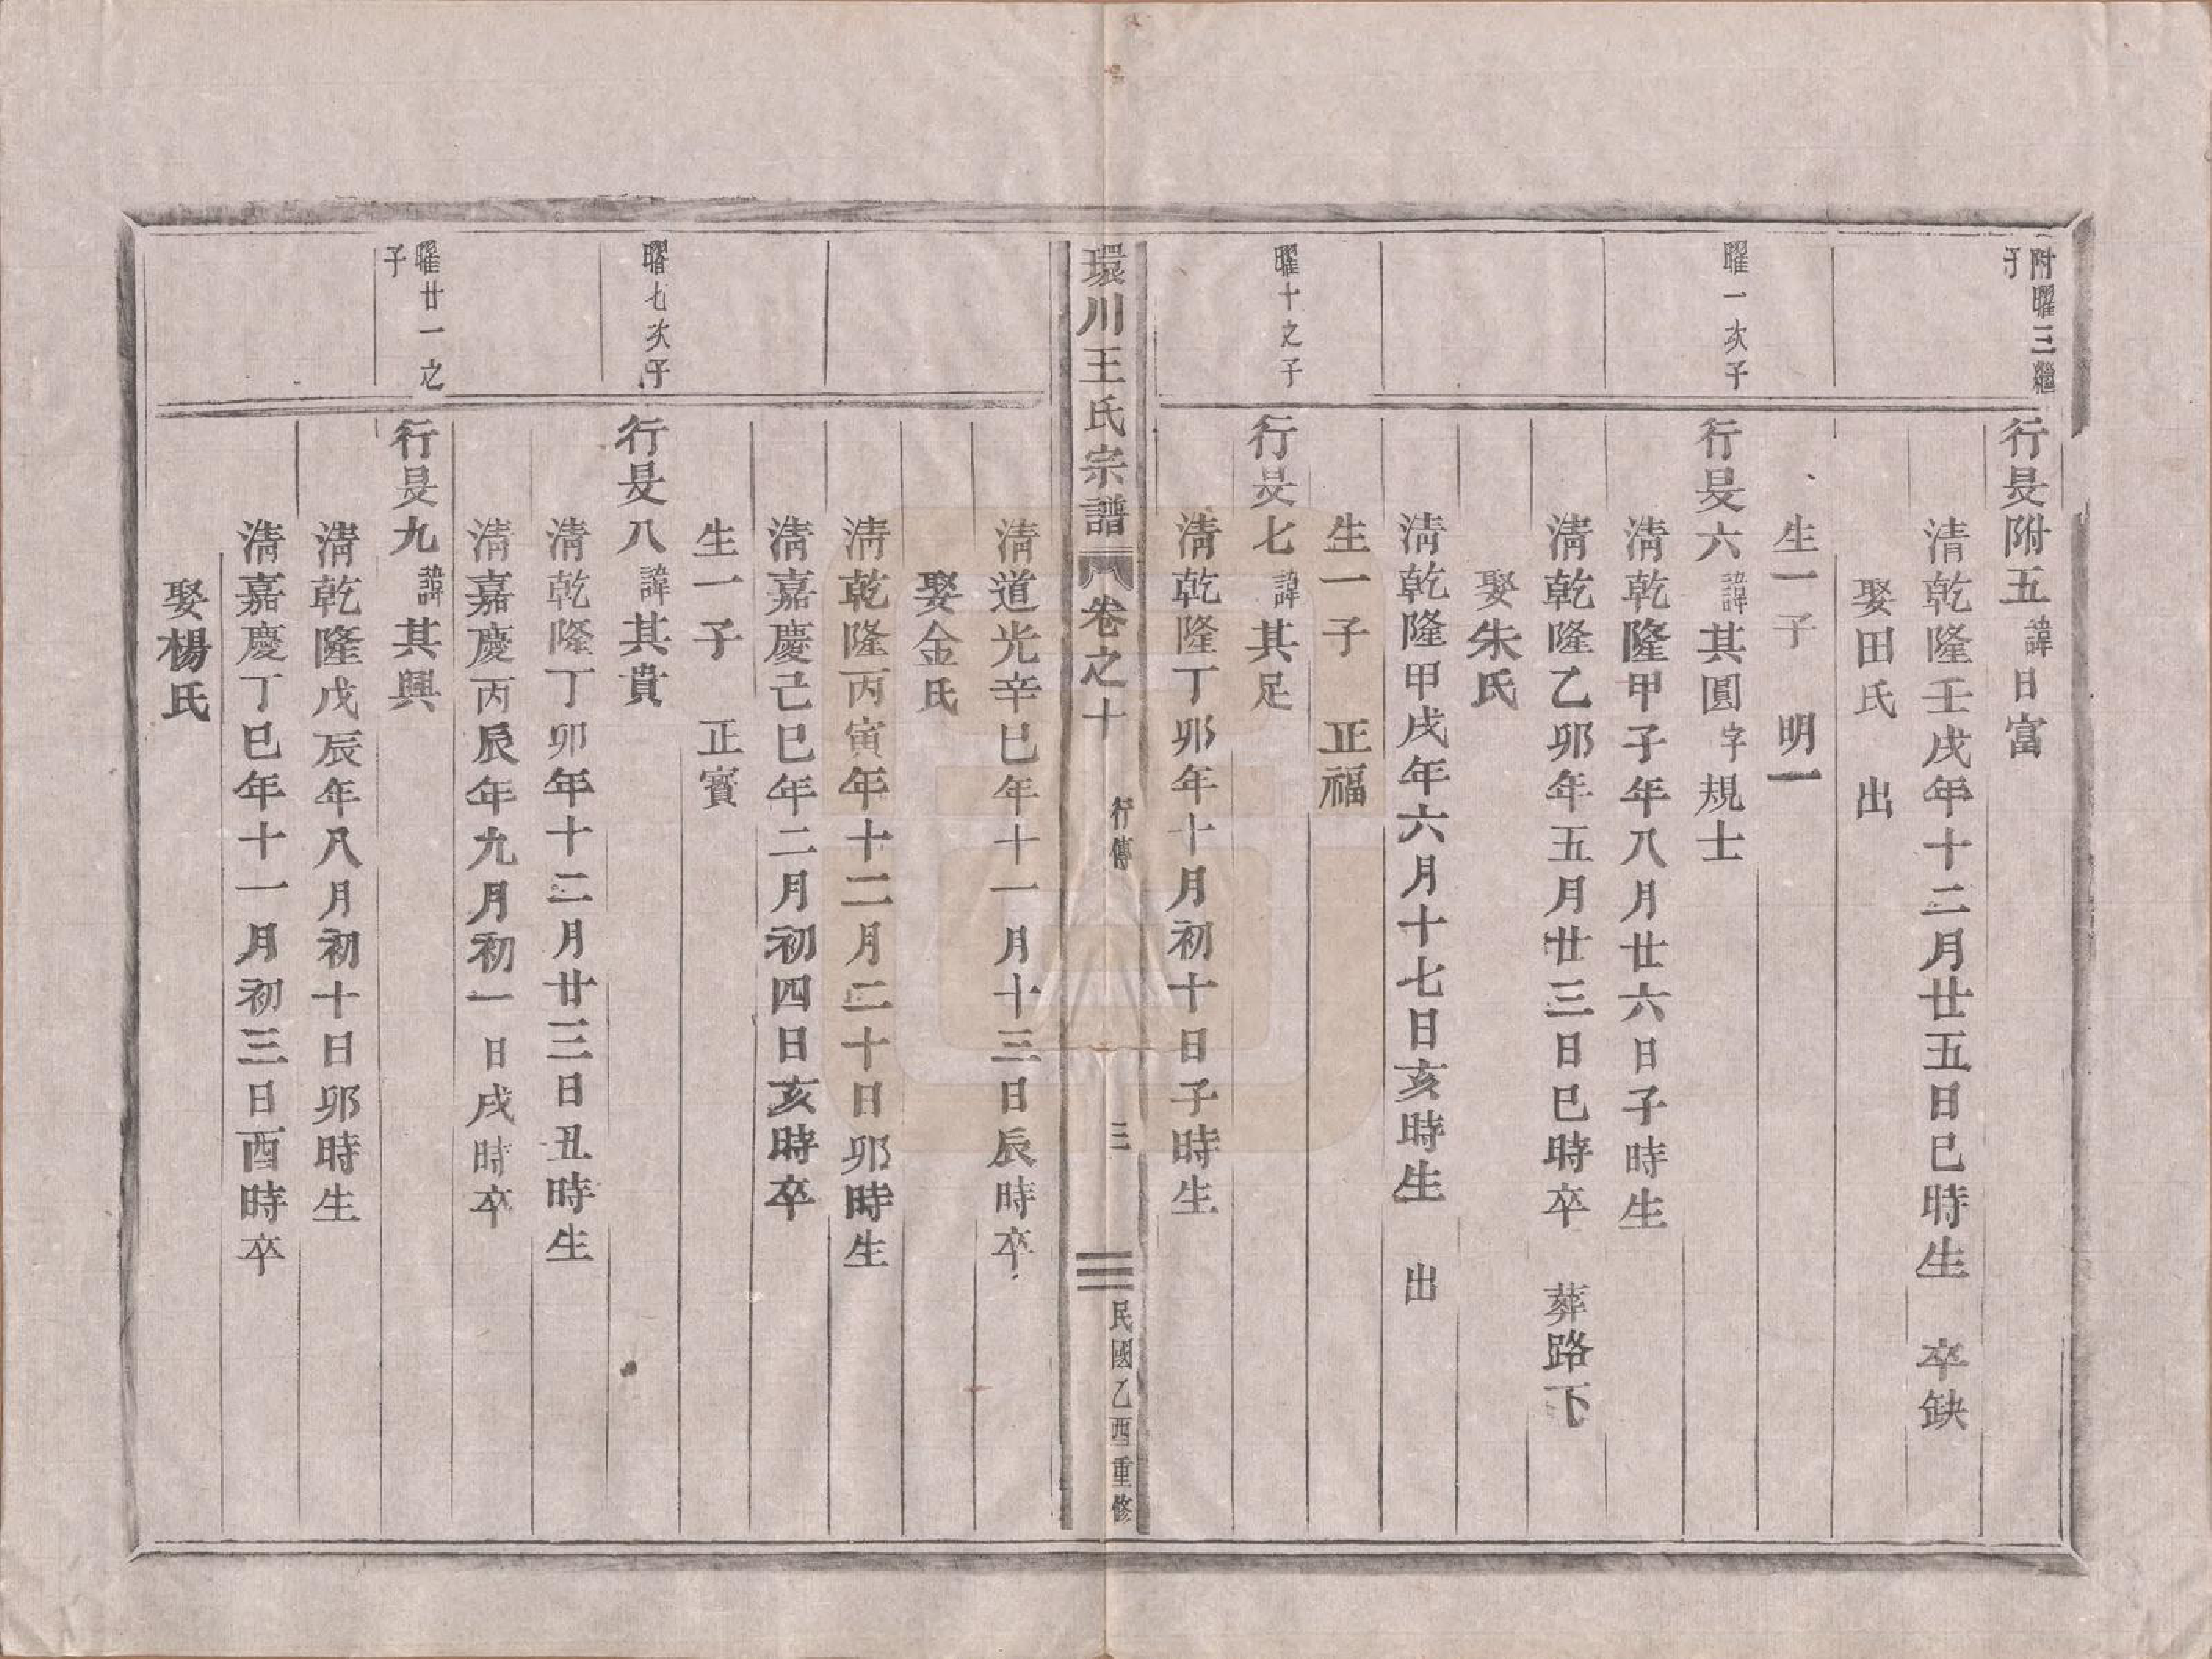 附曜三繼子
行旻附五諱日富
清乾隆壬戌年十二月廿五日巳時生 卒缺
娶田氏 出
生一子 明一
曜一次子
行旻六諱其圓字規士
清乾隆甲子年八月廿六日子時生
清乾隆乙卯年五月廿三日巳時卒 葬路下
娶朱氏
清乾隆甲戌年六月十七日亥時生 出
生一子 正福
曜十之子
行旻七諱其足
清乾隆丁卯年十月初十日子時生
環川王氏宗譜 卷之十 行傳 三 民國乙酉重修
清道光辛巳年十一月十三日辰時卒
娶金氏
清乾隆丙寅年十二月二十日卯時生
清嘉慶己巳年二月初四日亥時卒
生一子 正賓
曜七次子
行旻八諱其貴
清乾隆丁卯年十二月廿三日丑時生
清嘉慶丙辰年九月初一日戌時卒
曜廿一之子
行旻九諱其興
清乾隆戊辰年八月初十日卯時生
清嘉慶丁巳年十一月初三日酉時卒
娶楊氏